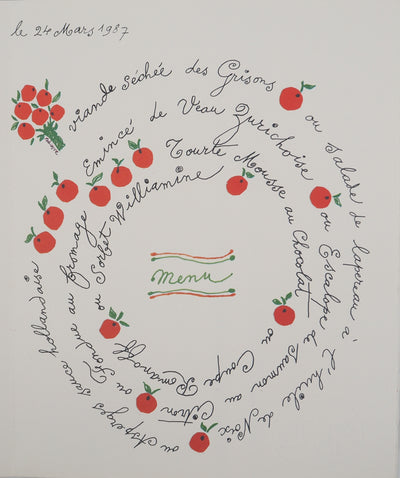 le 24 Mars 1987
viande séchée des Grisons
ou salade de lapereau à l'huile de Noix
ou Asperges sauce hollandaise
Emincé de Veau Zurichoise
ou Escalope de saumon au Citron
ou Fondue au fromage
Tourte Mousse au Chocolat
ou Coupe Romanoff
ou Sorbet Williamine
menu